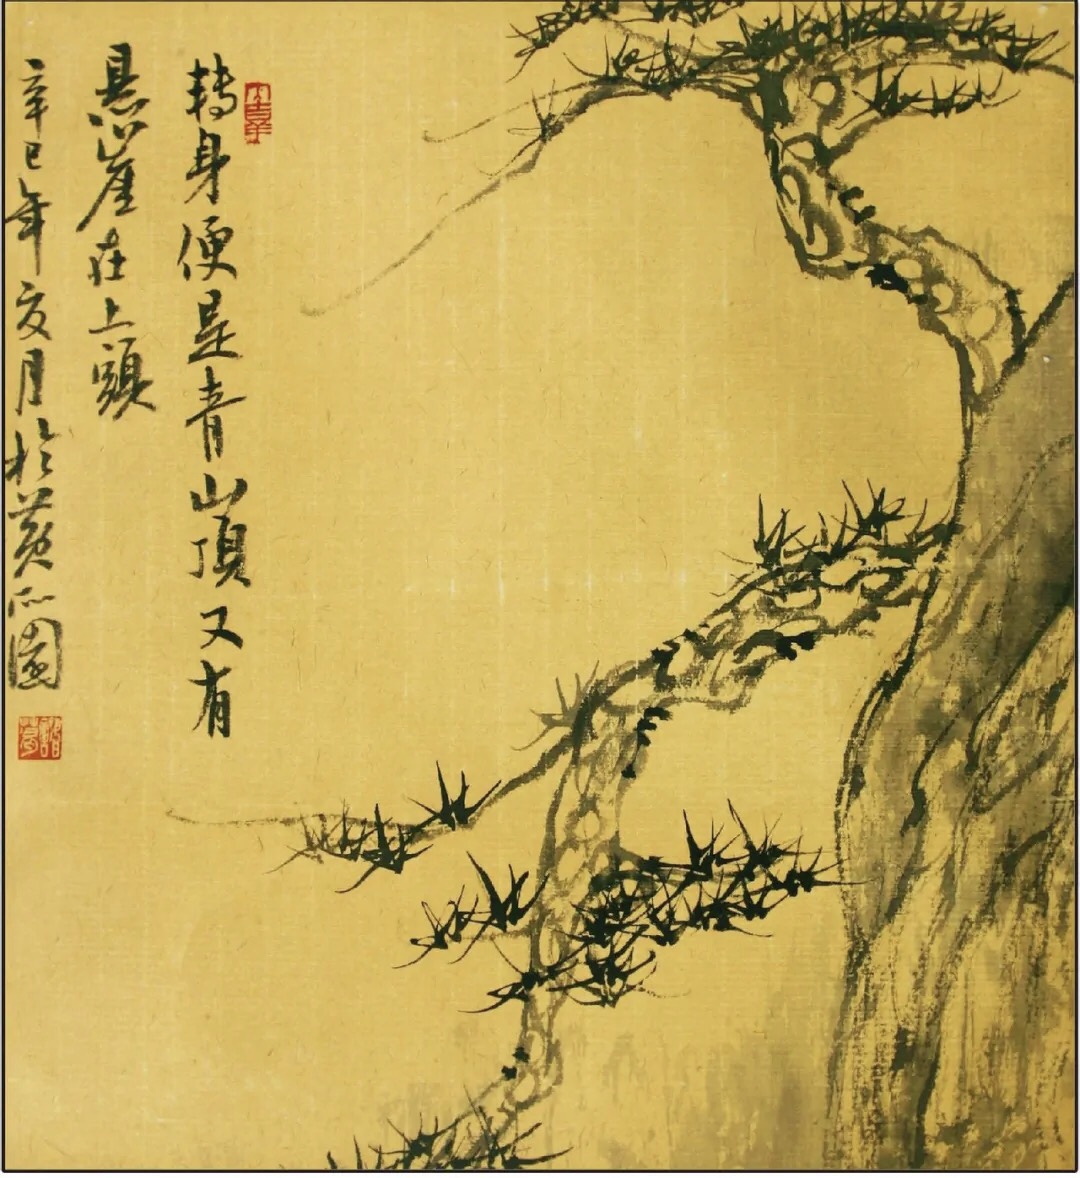 轉身便是青山頂又有
悬崖在上頭
辛巳年亥月於黃瓜園